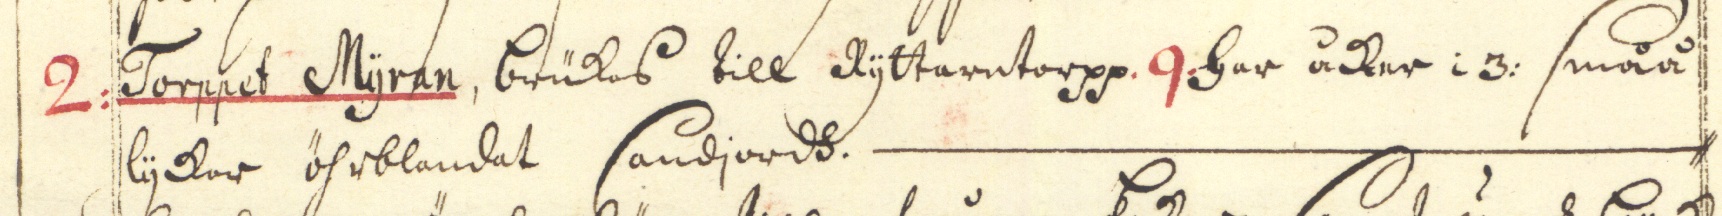 2: Torppet Myran, brukas till Ryttarntorpp. 9. Har åker i 3: småå
lyckor öhrblandat Sandjordh.